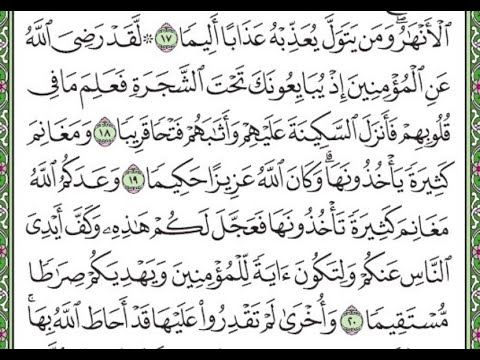 ٱلْأَنْهَٰرُ ۖ وَمَن يَتَوَلَّ يُعَذِّبْهُ عَذَابًا أَلِيمًا ١٧ ۞ لَّقَدْ رَضِىَ ٱللَّهُ
عَنِ ٱلْمُؤْمِنِينَ إِذْ يُبَايِعُونَكَ تَحْتَ ٱلشَّجَرَةِ فَعَلِمَ مَا فِى
قُلُوبِهِمْ فَأَنزَلَ ٱلسَّكِينَةَ عَلَيْهِمْ وَأَثَٰبَهُمْ فَتْحًا قَرِيبًا ١٨ وَمَغَانِمَ
كَثِيرَةً يَأْخُذُونَهَا ۗ وَكَانَ ٱللَّهُ عَزِيزًا حَكِيمًا ١٩ وَعَدَكُمُ ٱللَّهُ
مَغَانِمَ كَثِيرَةً تَأْخُذُونَهَا فَعَجَّلَ لَكُمْ هَٰذِهِۦ وَكَفَّ أَيْدِىَ
ٱلنَّاسِ عَنكُمْ وَلِتَكُونَ ءَايَةً لِّلْمُؤْمِنِينَ وَيَهْدِيَكُمْ صِرَٰطًا
مُّسْتَقِيمًا ٢٠ وَأُخْرَىٰ لَمْ تَقْدِرُوا۟ عَلَيْهَا قَدْ أَحَاطَ ٱللَّهُ بِهَا ۚ